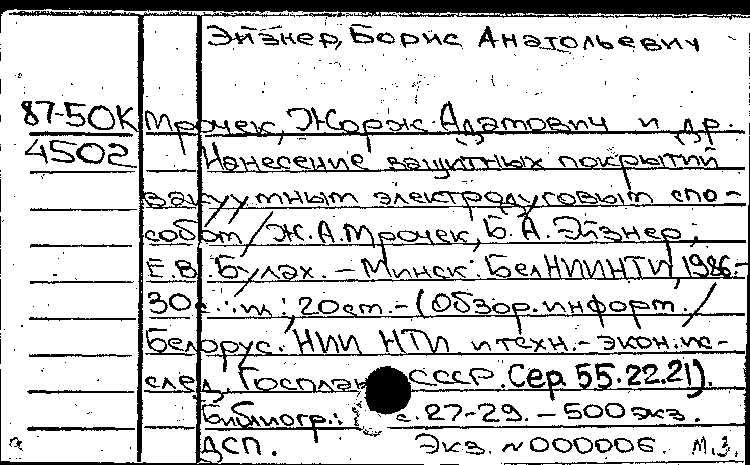 Эйзнер, Борис Анатольевич
87-50К Мрочек, Жорж Адамович и др.
4502 Нанесение защитных покрытий
вакуумным электродуговым спо-
собом / Ж.А.Мрочек, Б.А.Эйзнер,
Е.В. Булах. – Минск: БелНИИНТИ, 1986.–
30с.: ил.; 20см. – (Обзор. информ. /
Белорус. НИИ НТИ и техн.-экон. ис-
след. Госплана СССР. Сер. 55.22.21).
Библиогр.: с. 27-29. – 500 экз.
ДСП. Экз. №000006. м.з.